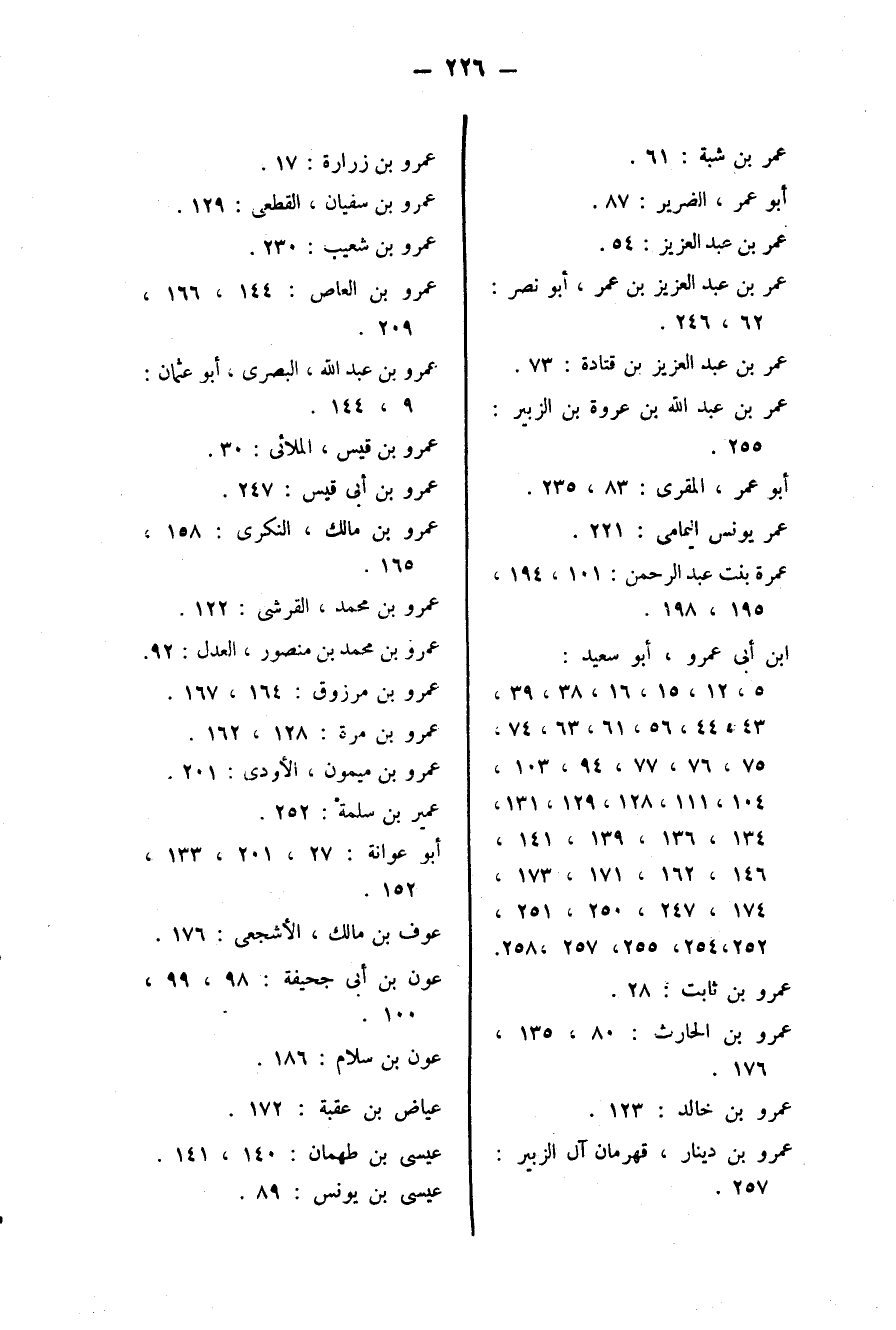 — ٢٢٦ —
عمر بن شبة : ٦١ .
أبو عمر ، الضرير : ٨٧ .
عمر بن عبد العزيز : ٥٤ .
عمر بن عبد العزيز بن عمر ، أبو نصر :
٦٢ ، ٢٤٦ .
عمر بن عبد العزيز بن قتادة : ٧٣ .
عمر بن عبد الله بن عروة بن الزبير :
٢٥٥ .
أبو عمر ، المقرى : ٨٣ ، ٢٣٥ .
عمر يونس اليمامى : ٢٢١ .
عمرة بنت عبد الرحمن : ١٠١ ، ١٩٤ ،
١٩٥ ، ١٩٨ .
ابن أبى عمرو ، أبو سعيد :
٥ ، ١٢ ، ١٥ ، ١٦ ، ٣٨ ، ٣٩ ،
٤٣ ، ٤٤ ، ٥٦ ، ٦١ ، ٦٣ ، ٧٤ ،
٧٥ ، ٧٦ ، ٧٧ ، ٩٤ ، ١٠٣ ،
١٠٤ ، ١١١ ، ١٢٨ ، ١٢٩ ، ١٣١ ،
١٣٤ ، ١٣٦ ، ١٣٩ ، ١٤١ ،
١٤٦ ، ١٦٢ ، ١٧١ ، ١٧٣ ،
١٧٤ ، ٢٤٧ ، ٢٥٠ ، ٢٥١ ،
٢٥٢ ، ٢٥٤ ، ٢٥٥ ، ٢٥٧ ، ٢٥٨ .
عمرو بن ثابت : ٢٨ .
عمرو بن الحارث : ٨٠ ، ١٣٥ ،
١٧٦ .
عمرو بن خالد : ١٢٣ .
عمرو بن دينار ، قهرمان آل الزبير :
٢٥٧ .
عمرو بن زرارة : ١٧ .
عمرو بن سفيان ، القطعى : ١٢٩ .
عمرو بن شعيب : ٢٣٠ .
عمرو بن العاص : ١٤٤ ، ١٦٦ ،
٢٠٩ .
عمرو بن عبد الله ، البصرى ، أبو عثمان :
٩ ، ١٤٤ .
عمرو بن قيس ، الملائى : ٣٠ .
عمرو بن أبى قيس : ٢٤٧ .
عمرو بن مالك ، النكرى : ١٥٨ ،
١٦٥ .
عمرو بن محمد ، القرشى : ١٢٢ .
عمرو بن محمد بن منصور ، العدل : ٩٢ .
عمرو بن مرزوق : ١٦٤ ، ١٦٧ .
عمرو بن مرة : ١٢٨ ، ١٦٢ .
عمرو بن ميمون ، الأودى : ٢٠١ .
عمير بن سلمة : ٢٥٢ .
أبو عوانة : ٢٧ ، ٢٠١ ، ١٣٣ ،
١٥٢ .
عوف بن مالك ، الأشجعى : ١٧٦ .
عون بن أبى جحيفة : ٩٨ ، ٩٩ ،
١٠٠ .
عون بن سلام : ١٨٦ .
عياض بن عقبة : ١٧٢ .
عيسى بن طهمان : ١٤٠ ، ١٤١ .
عيسى بن يونس : ٨٩ .